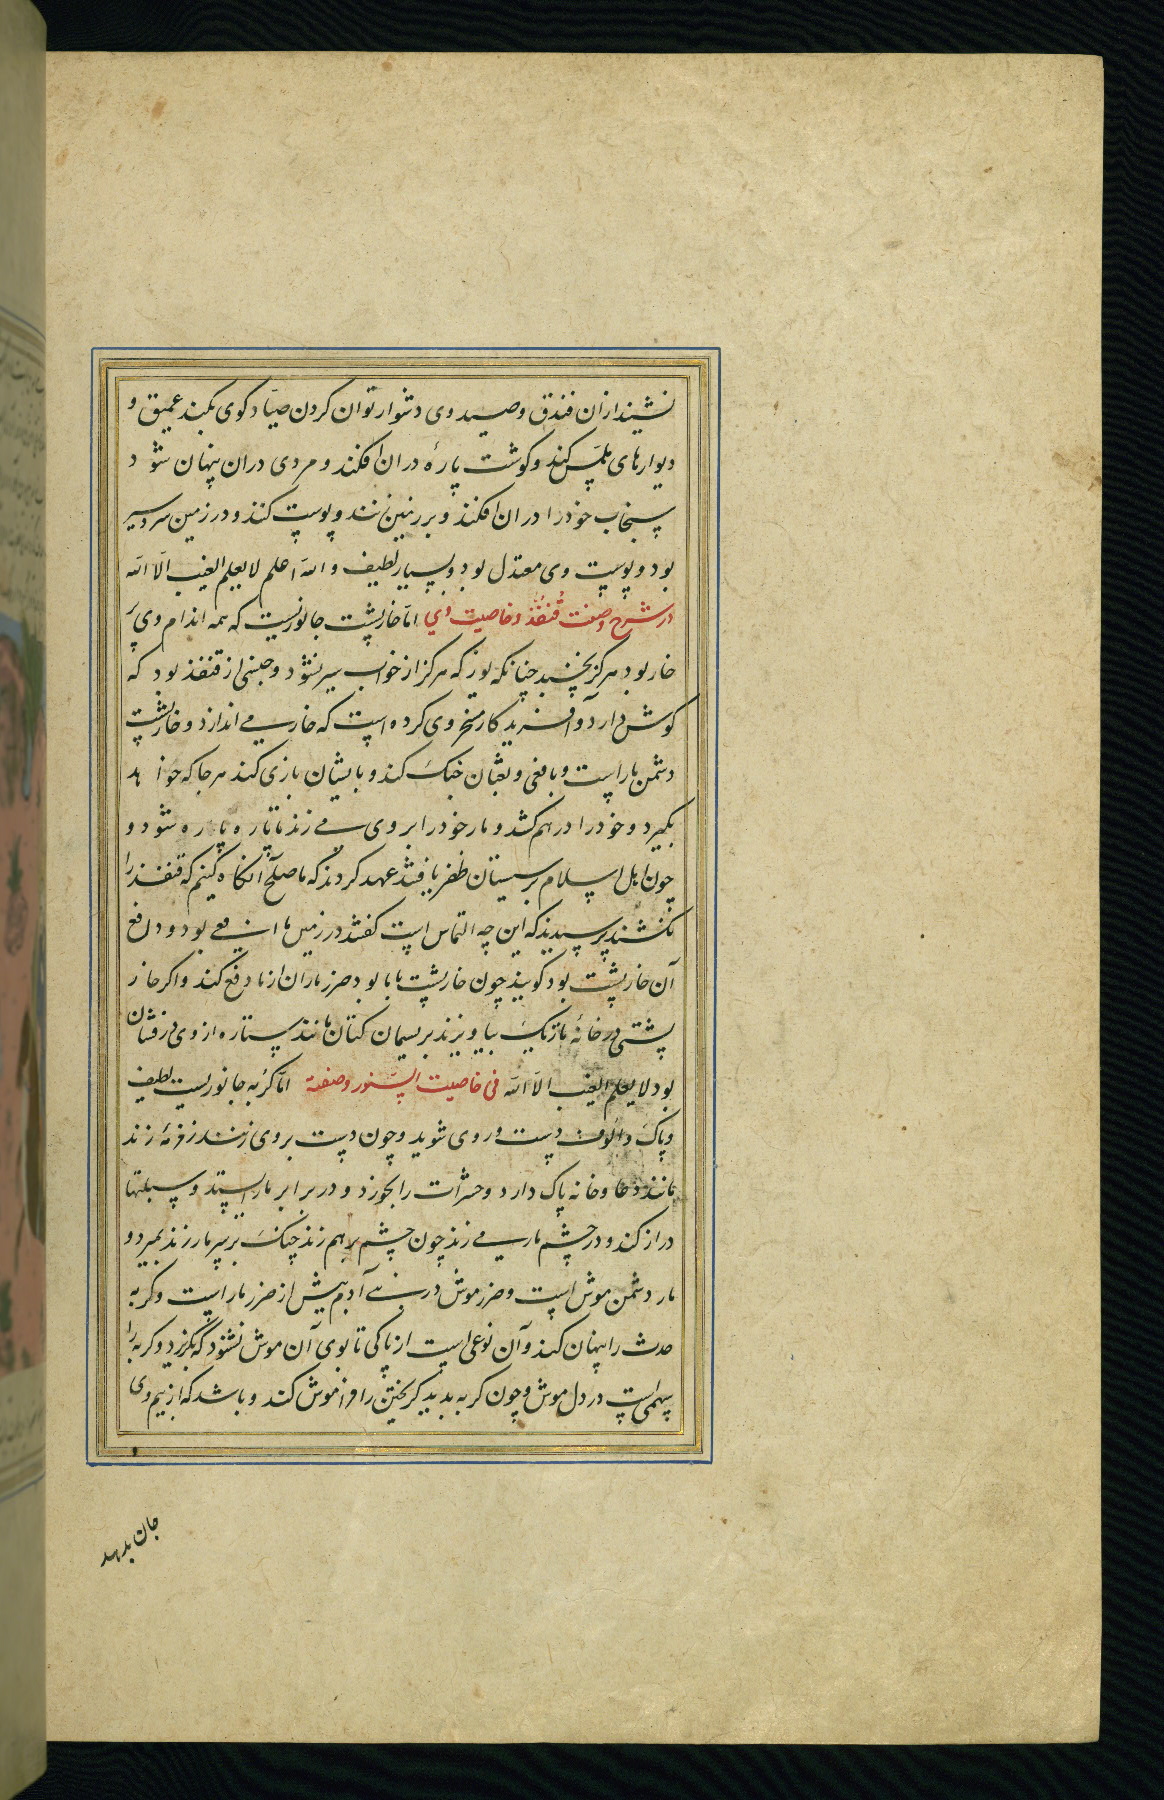 نشیند از ان فندق و صید وی دشوار توان کردن صیّاد کوی بکند عمیق و
دیوارهای بلس کند و کوشت پارهٔ در ان افکند و مردی دران پنهان شود
سنجاب خود را در ان افکند و بر زمین زنند و پوست کنند و در زمین سردسیر
بود و پوست وی معتدل بود و بسیار لطیف و الله اعلم لا یعلم الغیب الّا الله
در شرح و صفت قنفذ و خاصیت وی امّا خارپشت جانوریست که همه اندام وی پر
خار بود هرکز بخسبد چنانکه یوز که هرکز از خواب سیر نشود و جنسی از قنفذ بود که
کوش دارد و آفرید کار مسخر وی کرده است که خار می اندازد و خارپشت
دشمن مار است و با فعی و ثعبان جنک کند و با یشان بازی کند هر جا که خواهد
بکیرد و خود را در هم کشد و مار خود را بر وی می زند تا پاره پاره شود و
چون اهل اسلام بر سیستان ظفر یافتند عهد کردند که ما صلح آنکاه کنیم که قنفذ را
نکشند پرسیدند که این چه التماس است کفتند در زمین ما افعی بود و دفع
آن خارپشت بود کویند چون خارپشت با ما بود ضرر ماران از ما دفع کند و اکر خار
پشتی در خانهٔ تاریک بیاویزند بریسمان کتان مانند ستاره از وی درفشان
بود لا یعلم الغیب الّا الله فی خاصیت السنور و صفته امّا کربه جانوریست لطیف
و پاک و الوف دست و روی شوید و چون دست بر وی نهند زمزمهٔ زند
مانند دعا و خانه پاک دارد و حشرات را بخورد و در برابر مار ایستد و سبلتها
دراز کند و در چشم مار می زند چون چشم بر هم زند چنک بر سر مار زند بمیرد و
مار دشمن موش است و ضرر موش در بنی آدم بیش از ضرر مار است و کربه
حدث را پنهان کند و آن نوعی است از پاکی تا بوی آن موش نشنود که بکریزد و کربه را
سهمی است در دل موش و چون کربه بدید کریختن را فراموش کند و باشد که از بیم وی
جان بدهد